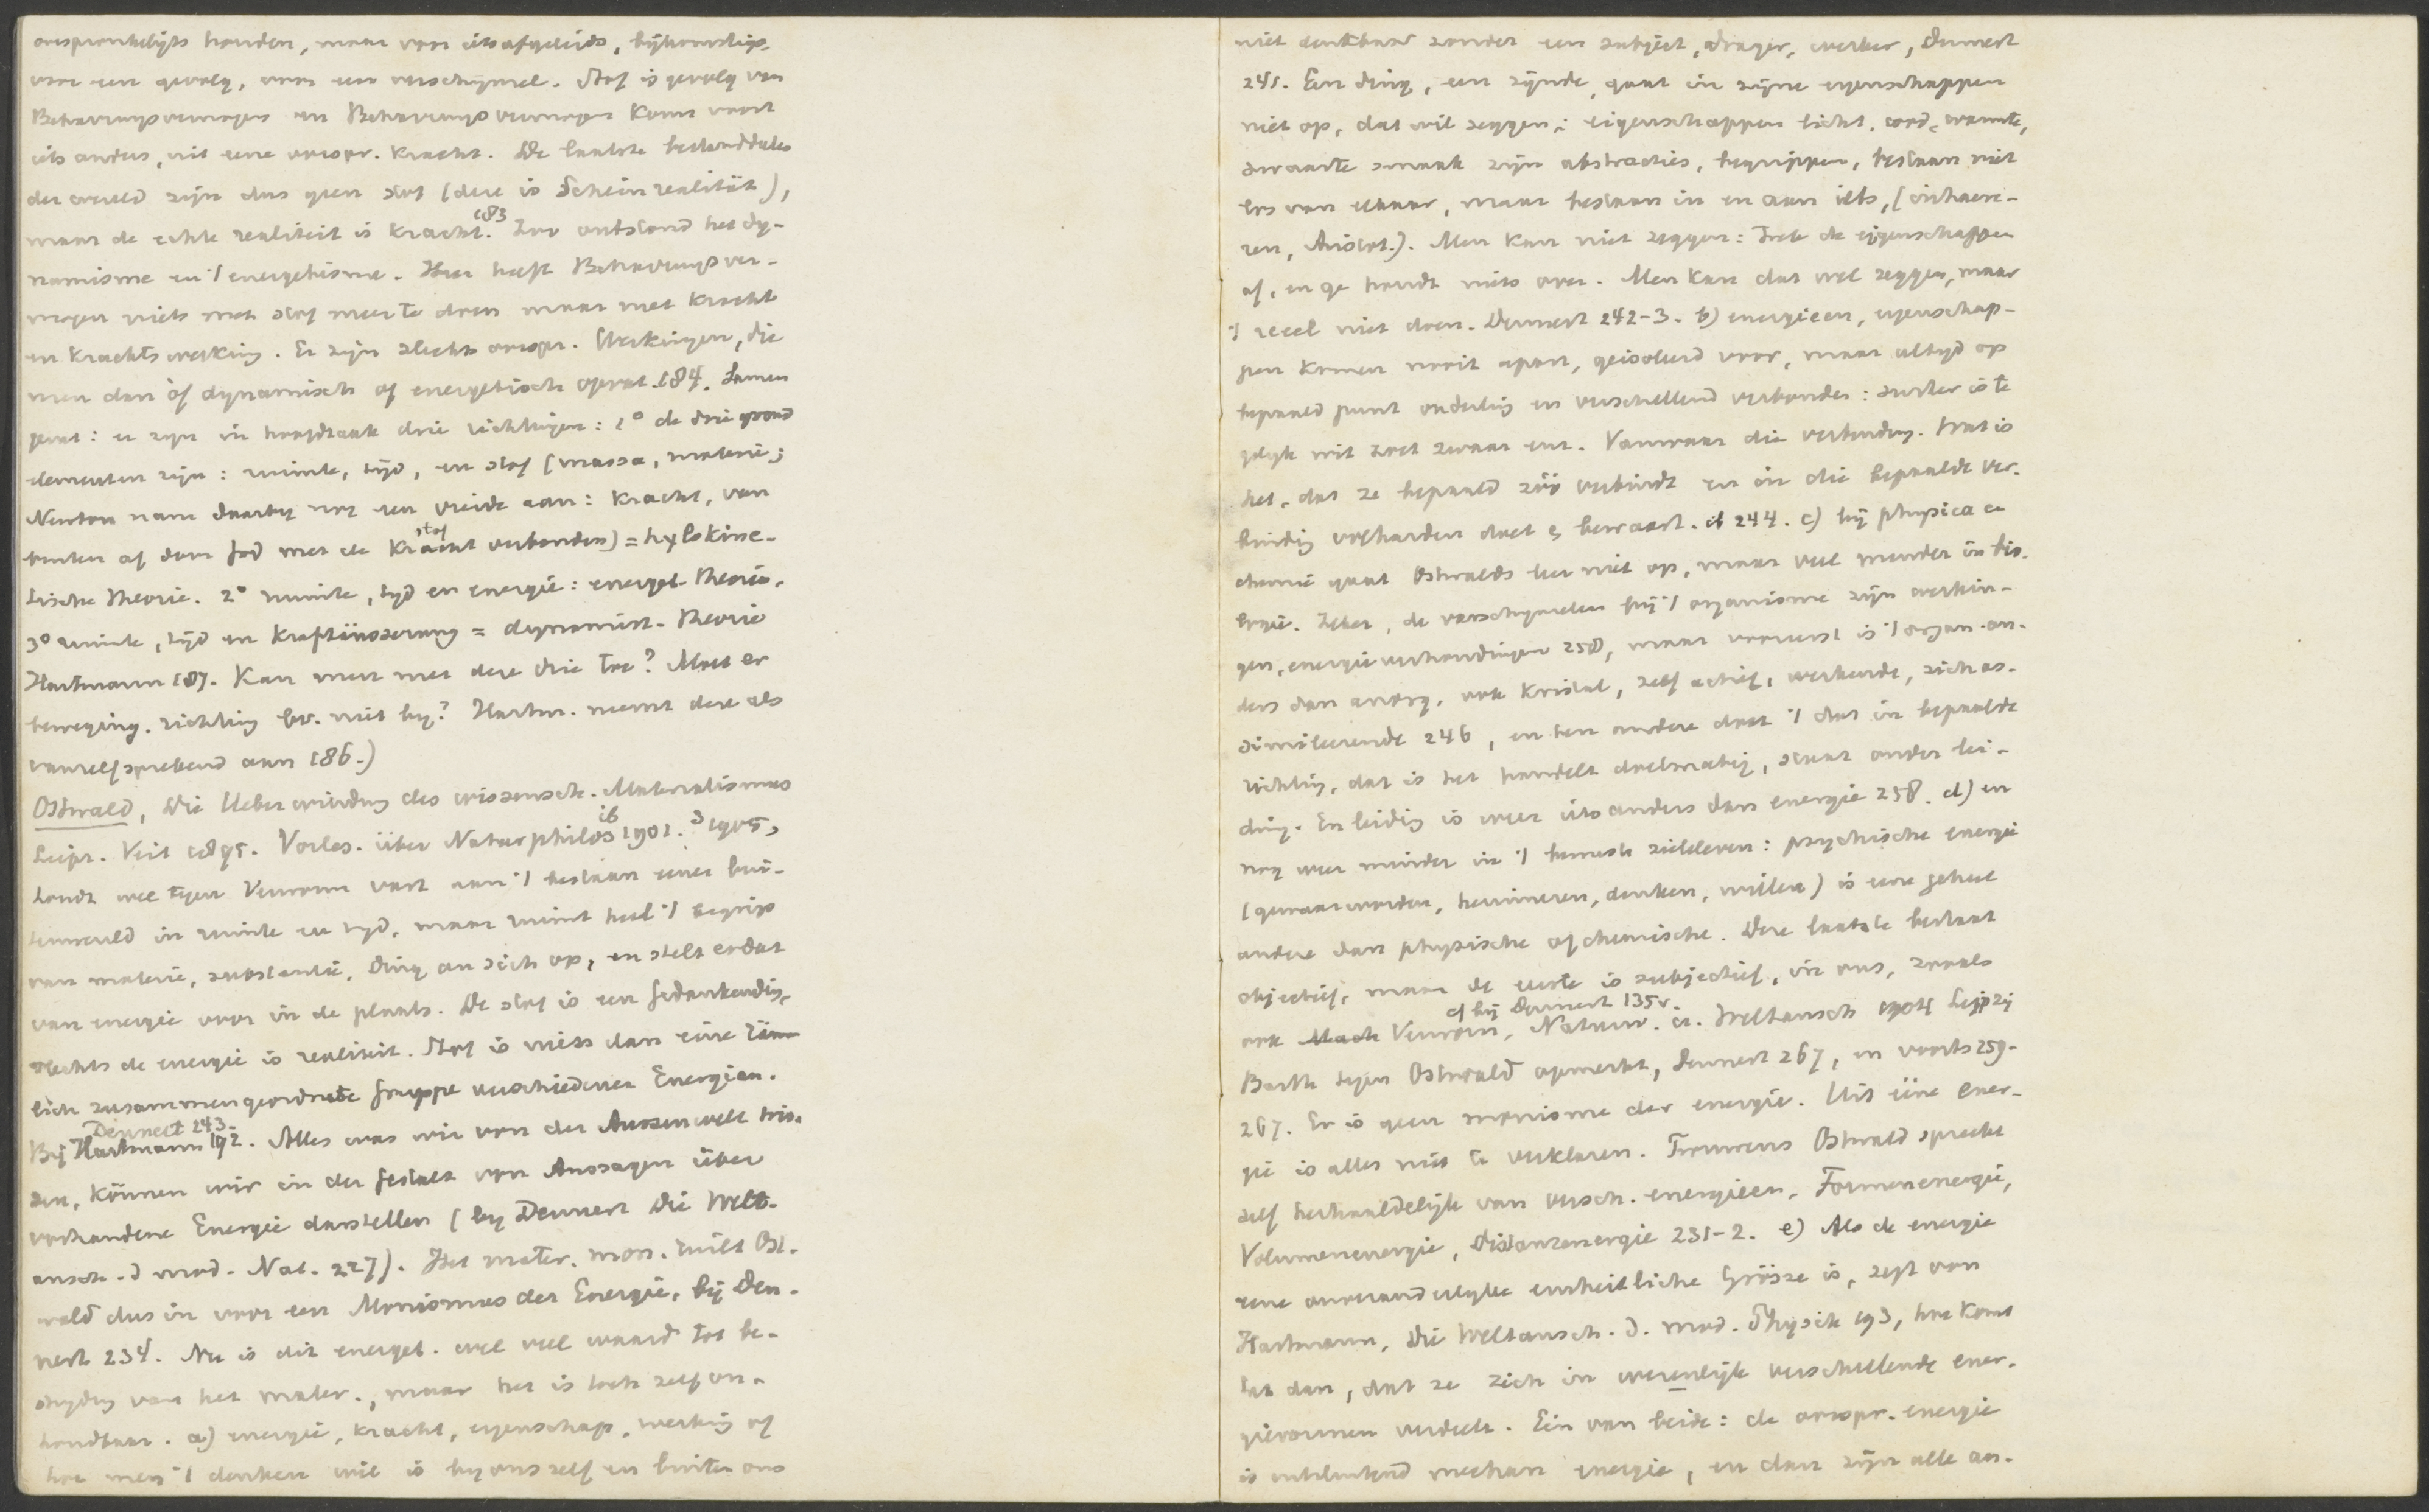 oorspronkelijks houden, maar voor iets afgeleids, bijkomstigs,
voor een gevolg, voor een verschijnsel. Stof is gevolg van
Bewegingsvermogen en Bewegingsvermogen komt voort
iets anders, uit eene oorspr. Kracht. De laatste bestanddelen
der wereld zijn dus geen stof (deze is Scheinrealität),
maar de echte realiteit is kracht. 183 Zoo ontstond het dy-
namisme en 't energetisme. Hier heeft
niets met stof meer te doen maar met kracht
en krachtswerking. Er zijn slechts oorspr. Werkingen, die
men dan òf dynamisch of energetisch opvat 184. Samen
gevat: er zijn in hoofdzaak drie richtingen: 1° de drie grond
elementen zijn: ruimte, tijd, en stof (massa, materie;
Newton nam daarbij nog een vierde aan: Kracht, van
buiten af door God met de stof verbonden) = hylokine-
tische theorie. 2° ruimte, tijd en energie: energet. theorie.
3° ruimte, tijd en Kraftäusserung = dynamist. theorie
Hartmann 187. Kan men met deze drie toe? Moet er
beweging, richting bv. niet bij? Hartm. neemt deze als
vanzelfsprekend aan 186.)
Ostwald, Die Ueberwindung des wissensch. Materialismus
Leipz. Veit 1895. Vorles. über Naturphilos ib 1901. ³1905,
houdt wel tegen Verworn vast aan 't bestaan eener bui-
tenwereld in ruimte en tijd, maar ruimt heel 't begrip
van materie, substantie, Ding an sich op, en stelt er dat
van energie voor in de plaats. De stof is een Gedankending,
slechts de energie is realiteit. Stof is niets dan eine räum
lich zusammengeordnete Gruppe verschiedener Energien.
Dennert 243.
Bij Hartmann 192. Alles was wir von der Aussenwelt wis-
sen, können wir in der Gestalt von Aussagen über
vorhandene Energie darstellen (bij Dennert Die Welt-
ansch. d mod. Nat. 227). Het mater. mon. ruilt Ost-
wald dus in voor een Monismus der Energie, bij Den-
nert 234. Nu is dit energet. wel veel waard tot be-
strijding van het mater., maar het is toch zelf on-
houdbaar. a) energie, kracht, eigenschap, werking of
hoe men 't denken wil is bij ons zelf en buiten ons
niet denkbaar zonder een subject, drager, werker, Dennert
241. Een ding, een zijnde, gaat in zijne eigenschappen
niet op, dat wil zeggen: eigenschappen licht, warmte,
zwaarte smaak zijn abstracties, begrippen, bestaan niet
los van elkaar, maar bestaan in en aan iets, (inhaere-
ren, Aristot.). Men kan niet zeggen: Trek de eigenschappen
af, en ge houdt niets over. Men kan dat wel zeggen, maar
't reëel niet doen. Dennert 242-3. b) energieën, eigenschap-
pen komen nooit apart, geisoleerd voor, maar altijd op
bepaald punt onderling en verschillend verbonden: suiker is te
gelijk wit zoet zwaar enz. Vanwaar die verbinding. Wat is
het, dat ze bepaald zóó verbindt en in die bepaalde ver-
binding volharden doet & bewaart. ib 244. c) bij physica en
chemie gaat Ostwalds leer niet op, maar veel minder in bio-
logie. Zeker, de verschijnselen bij 't organisme zijn werkin-
gen, energieverhoudingen 258, maar vooreerst is 't organ. an-
ders dan anorg. ook kristal, zelf actief, werkende, zich as-
simileerende 246, en ten andere doet 't dat in bepaalde
richting, dat is het handelt doelmatig, staat onder lei-
ding. En leiding is weer iets anders dan energie 258. d) en
nog weer minder in 't bewuste zieleleven: psychische energie
(gewaarworden, herinneren, denken, willen) is eene geheel
andere dan physische of chemische. Deze laatste bestaat
objectief, maar de eerste is subjectief, in ons, zooals
cf bij Dennert 135v.
ook Mach Verworn, Naturw. u. Weltansch 1904 Leipzig
Barth tegen Ostwald opmerkt, Dennert 267, en voorts 259-
267. Er is geen monisme der energie. Uit ééne ener-
gie is alles niet te verklaren. Trouwens Ostwald spreekt
zelf herhaaldelijk van versch. energieën, Formenenergie,
Volumenenergie, Distanzenergie 231-2. e) Als de energie
eene onveranderlijke einheitliche Grösze is, zegt von
Hartmann, Die Weltansch. d. mod. Physik 193, hoe komt
het dan, dat ze zich in wezenlijk verschillende ener-
gievormen verdeelt. Eén van beide: de oorspr. energie
is uitsluitend mechan energie, en dan zijn alle an-